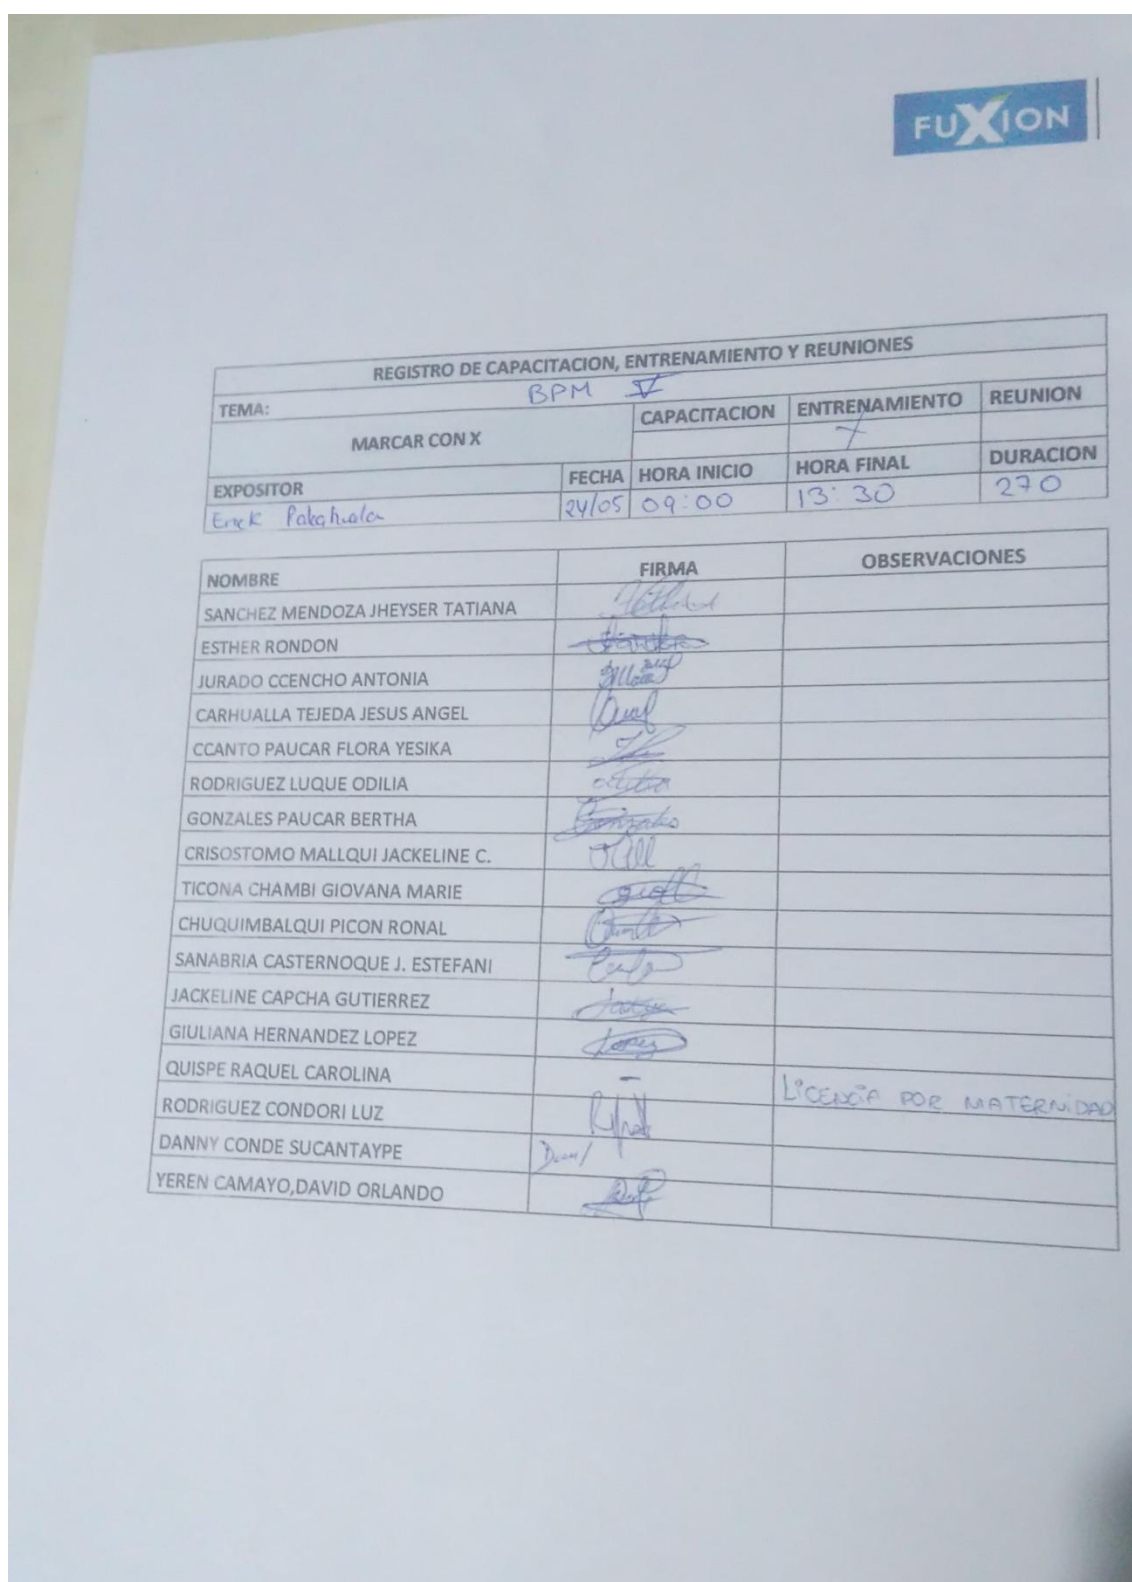 FUXION
REGISTRO DE CAPACITACION, ENTRENAMIENTO Y REUNIONES
TEMA: BPM V
MARCAR CON X CAPACITACION ENTRENAMIENTO REUNION
X
EXPOSITOR FECHA HORA INICIO HORA FINAL DURACION
Erick 24/05 09:00 13:30 270
NOMBRE FIRMA OBSERVACIONES
SANCHEZ MENDOZA JHEYSER TATIANA
ESTHER RONDON
JURADO CCENCHO ANTONIA
CARHUALLA TEJEDA JESUS ANGEL
CCANTO PAUCAR FLORA YESIKA
RODRIGUEZ LUQUE ODILIA
GONZALES PAUCAR BERTHA Gonzales
CRISOSTOMO MALLQUI JACKELINE C.
TICONA CHAMBI GIOVANA MARIE
CHUQUIMBALQUI PICON RONAL
SANABRIA CASTERNOQUE J. ESTEFANI
JACKELINE CAPCHA GUTIERREZ
GIULIANA HERNANDEZ LOPEZ Lopez
QUISPE RAQUEL CAROLINA - LICENCIA POR MATERNIDAD
RODRIGUEZ CONDORI LUZ
DANNY CONDE SUCANTAYPE
YEREN CAMAYO,DAVID ORLANDO